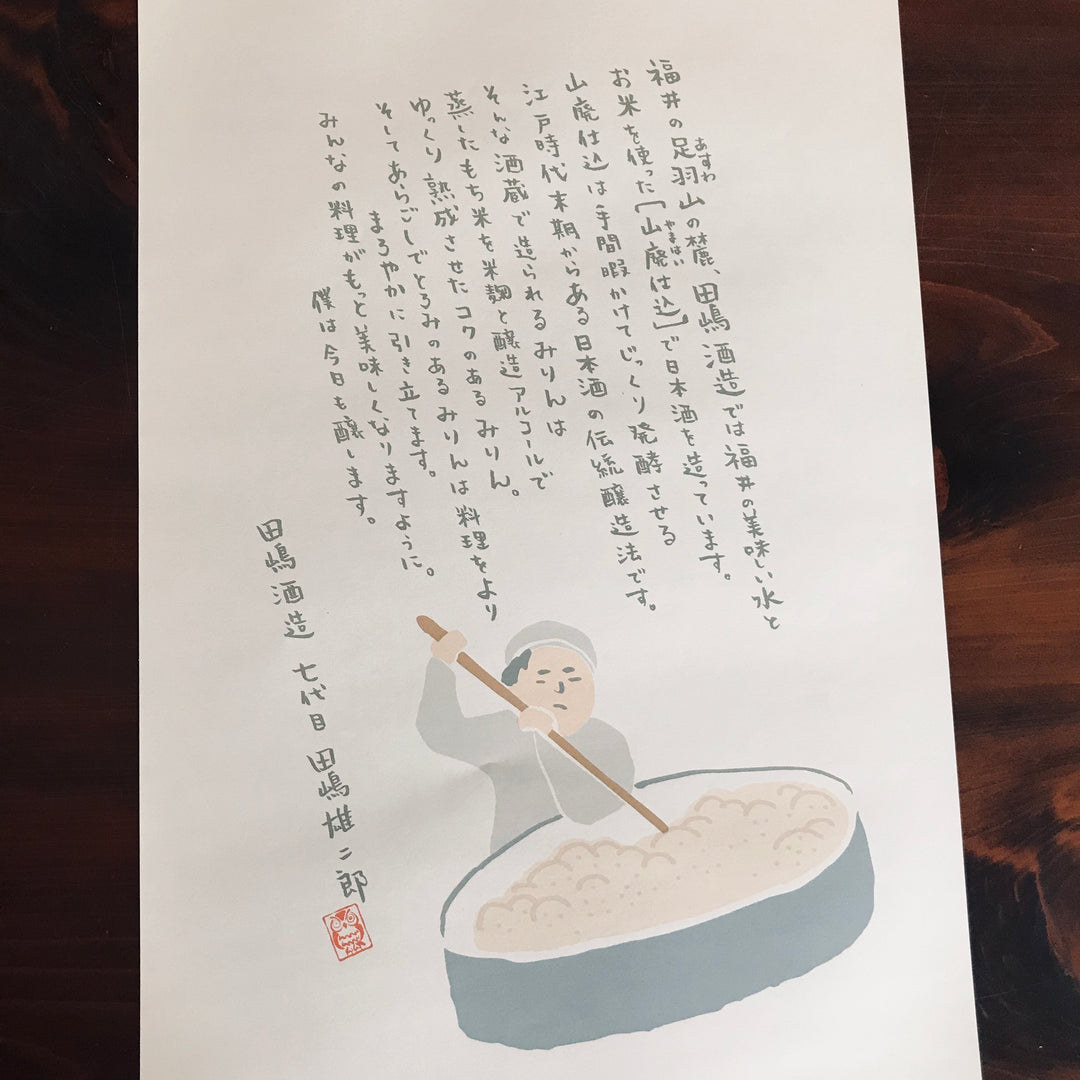 福井の足羽山の麓、田嶋酒造では福井の美味しい水と
あすわ
お米を使った[山廃仕込]で日本酒を造っています。
やまはい
山廃仕込は手間暇かけてじっくり発酵させる
江戸時代末期からある日本酒の伝統醸造法です。
そんな酒蔵で造られるみりんは
蒸したもち米を米麹と醸造アルコールで
ゆっくり熟成させたコクのあるみりん。
そしてあらごしでとろみのあるみりんは料理をより
まろやかに引き立てます。
みんなの料理がもっと美味しくなりますように。
僕は今日も醸します。
田嶋酒造 七代目 田嶋雄二郎